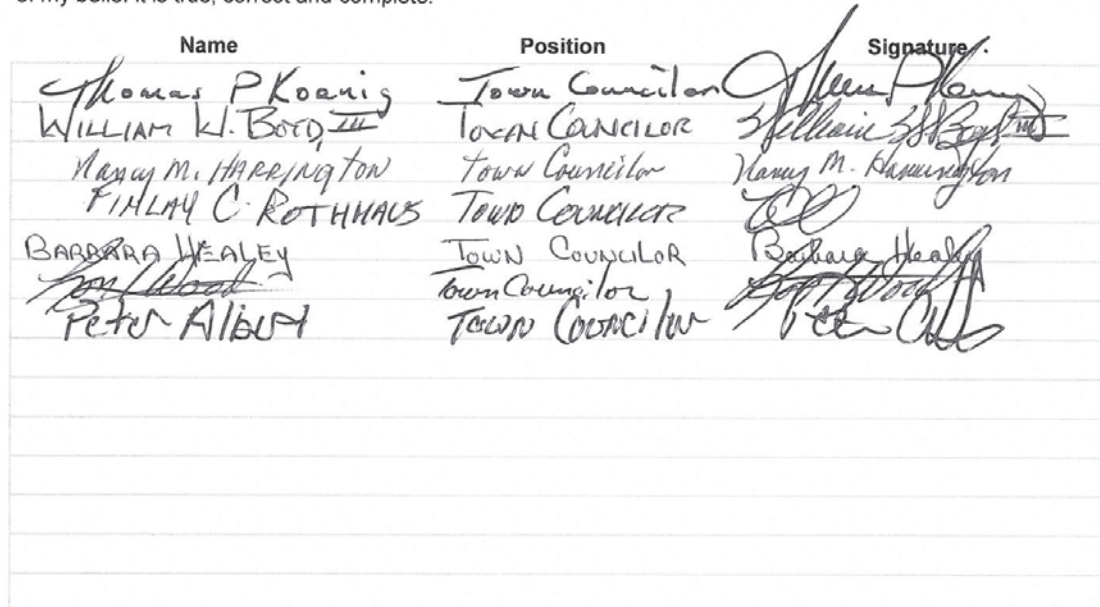 of my belief it is true, correct and complete.
Name Position Signature
Thomas P Koenig Town Councilor
WILLIAM W. BOYD, III TOWN COUNCILOR William W Boyd III
Nancy M. HARRINGTON Town Councilor Nancy M. Harrington
FINLAY C. ROTHHAUS TOWN COUNCILOR
BARBARA HEALEY TOWN COUNCILOR Barbara Healey
Wood Town Councilor Wood
Peter Albert TOWN COUNCILOR Peter